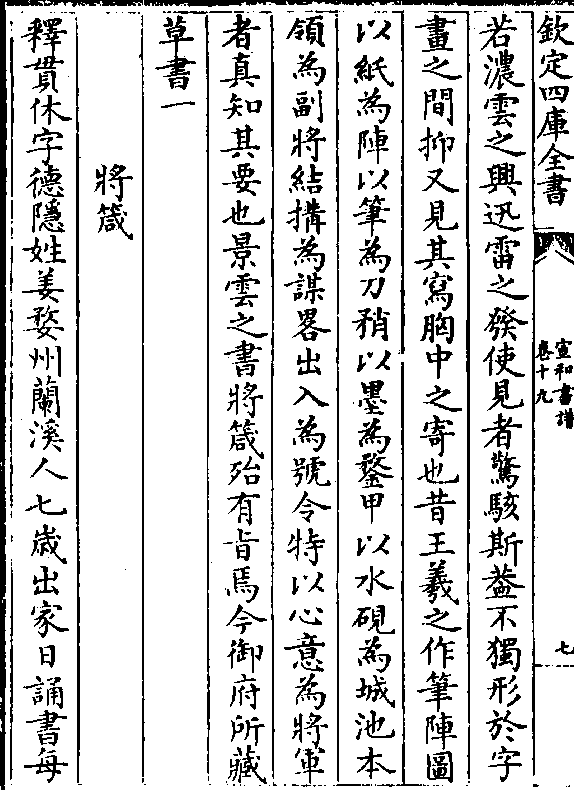 欽定四庫全書
宣和書譜
卷十九
七
若濃雲之興迅雷之發使見者驚駭斯蓋不獨形於字
畫之間抑又見其寫胸中之寄也昔王羲之作筆陣圖
以紙為陣以筆為刀矟以墨為鍪甲以水硯為城池本
領為副將結搆為謀畧出入為號令特以心意為將軍
者真知其要也景雲之書將箴殆有旨焉今御府所藏
草書一
將箴
釋貫休字德隱姓姜婺州蘭溪人七歲出家日誦書每